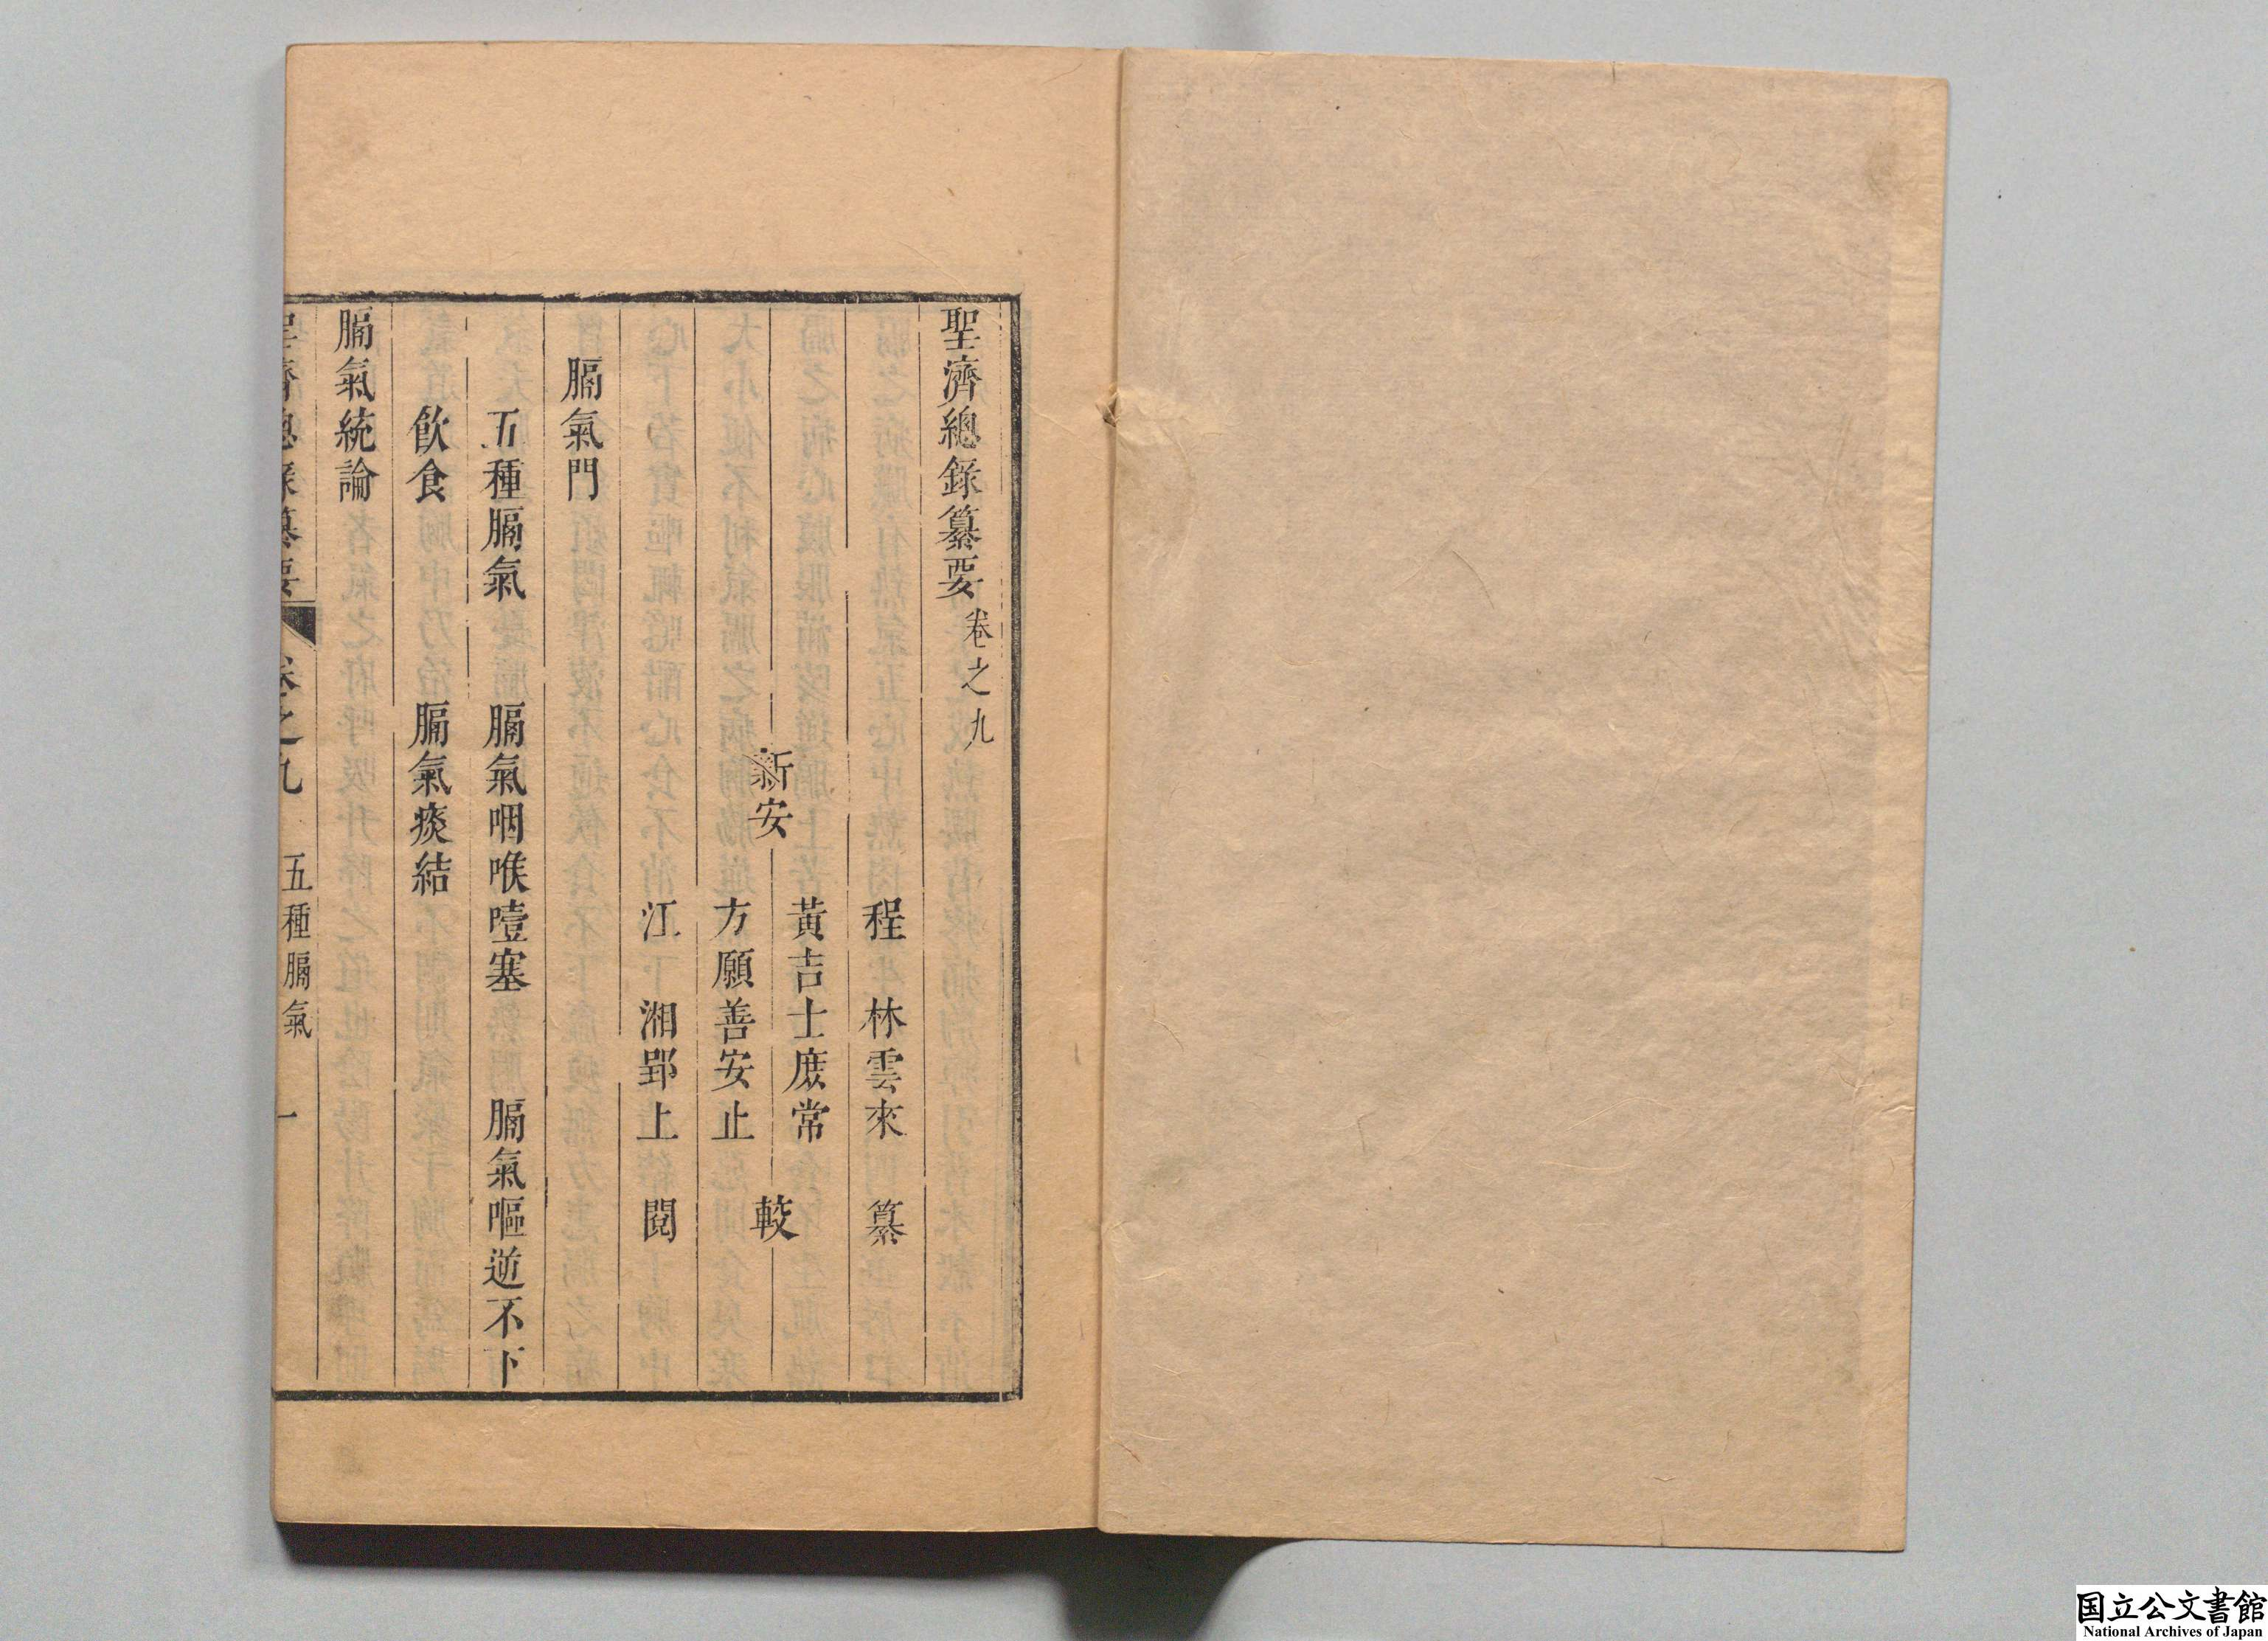 聖濟總錄纂要卷之九
程林雲來纂
新安
黃吉士庶常
較
方願善安止
江湘郢上閱
膈氣門
五種膈氣 膈氣咽喉噎塞 膈氣嘔逆不下
飲食 膈氣痰結
膈氣統論
聖濟總錄纂要 卷之九 五種膈氣 一
国立公文書館
National Archives of Japan